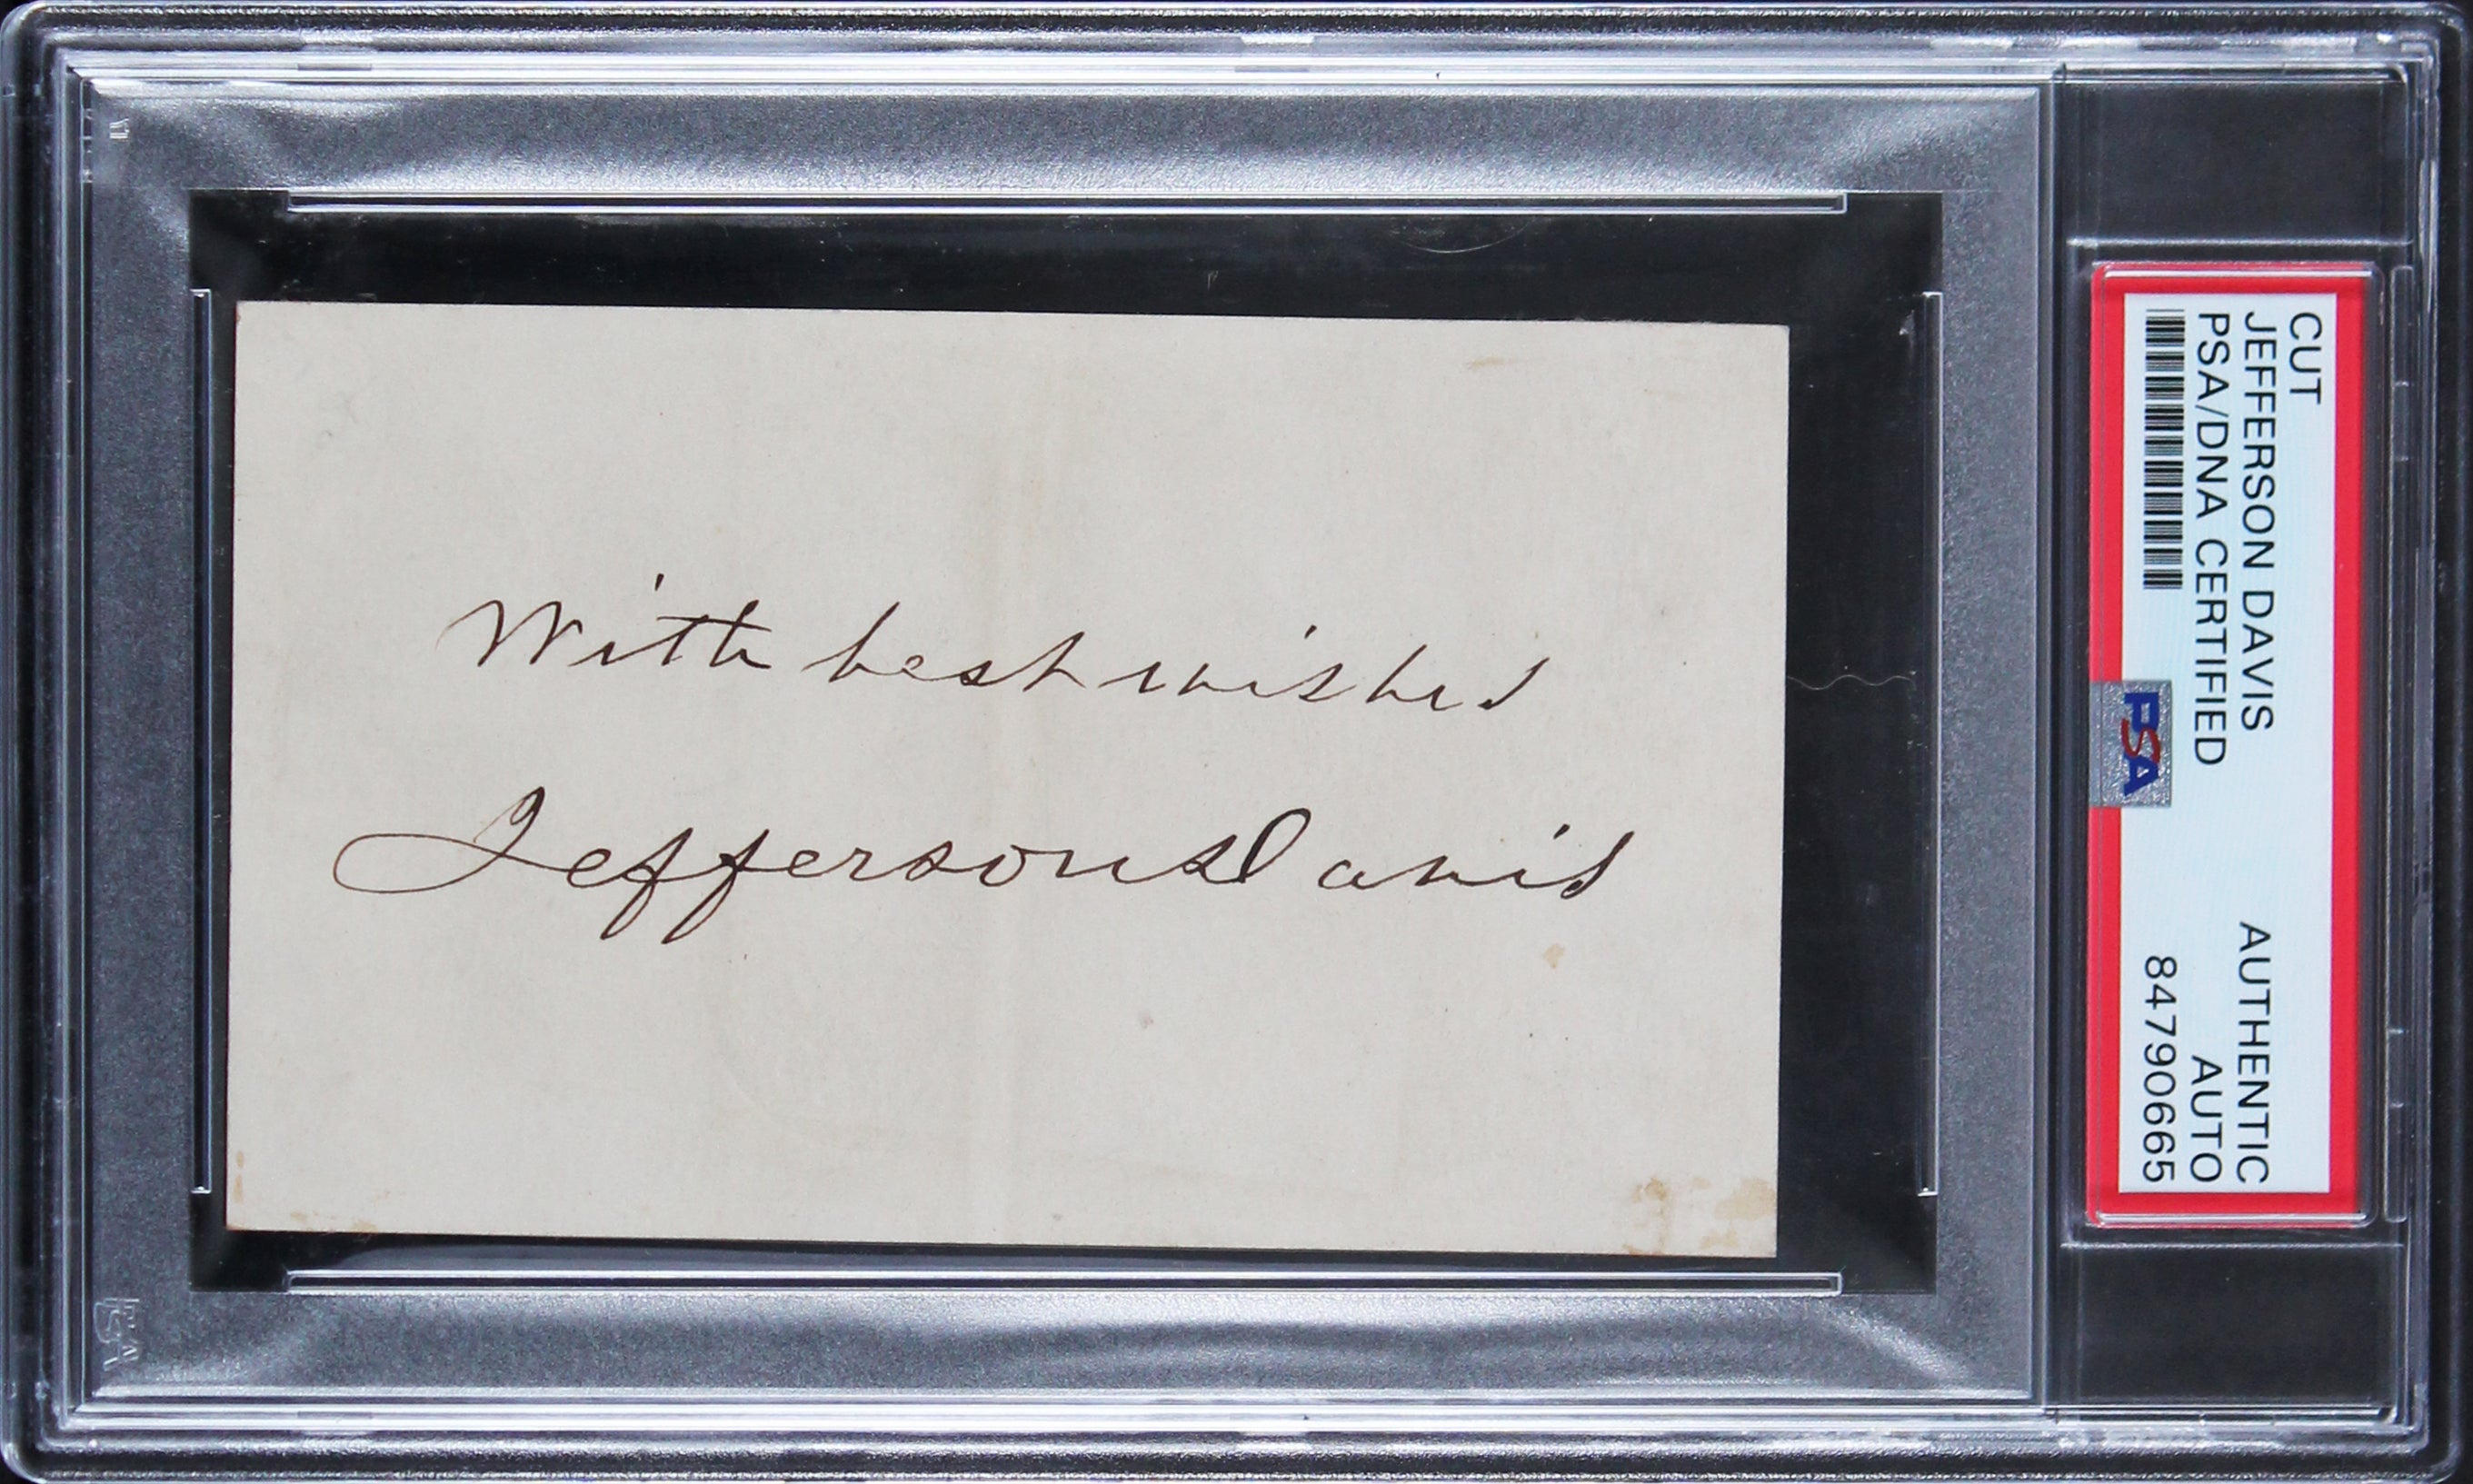 With best wishes
Jefferson Davis
CUT
JEFFERSON DAVIS AUTHENTIC
PSA/DNA CERTIFIED AUTO
84790665
PSA